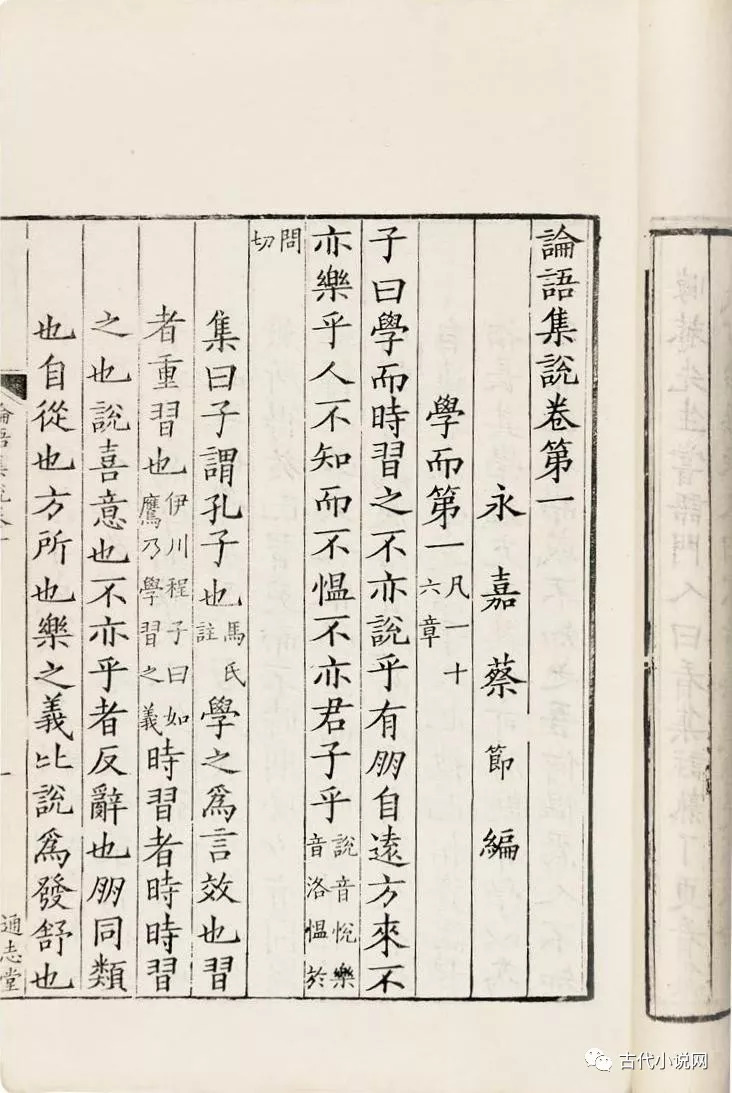 論語集說卷第一
永嘉蔡節編
學而第一凡一十六章
子曰學而時習之不亦說乎有朋自遠方來不
亦樂乎人不知而不愠不亦君子乎說音悅樂音洛愠於
問切
集曰子謂孔子也馬氏註學之爲言效也習
者重習也伊川程子曰如鷹乃學習之義時習者時時習
之也說喜意也不亦乎者反辭也朋同類
也自從也方所也樂之義比說爲發舒也
論語集說卷一 一 通志堂
古代小说网